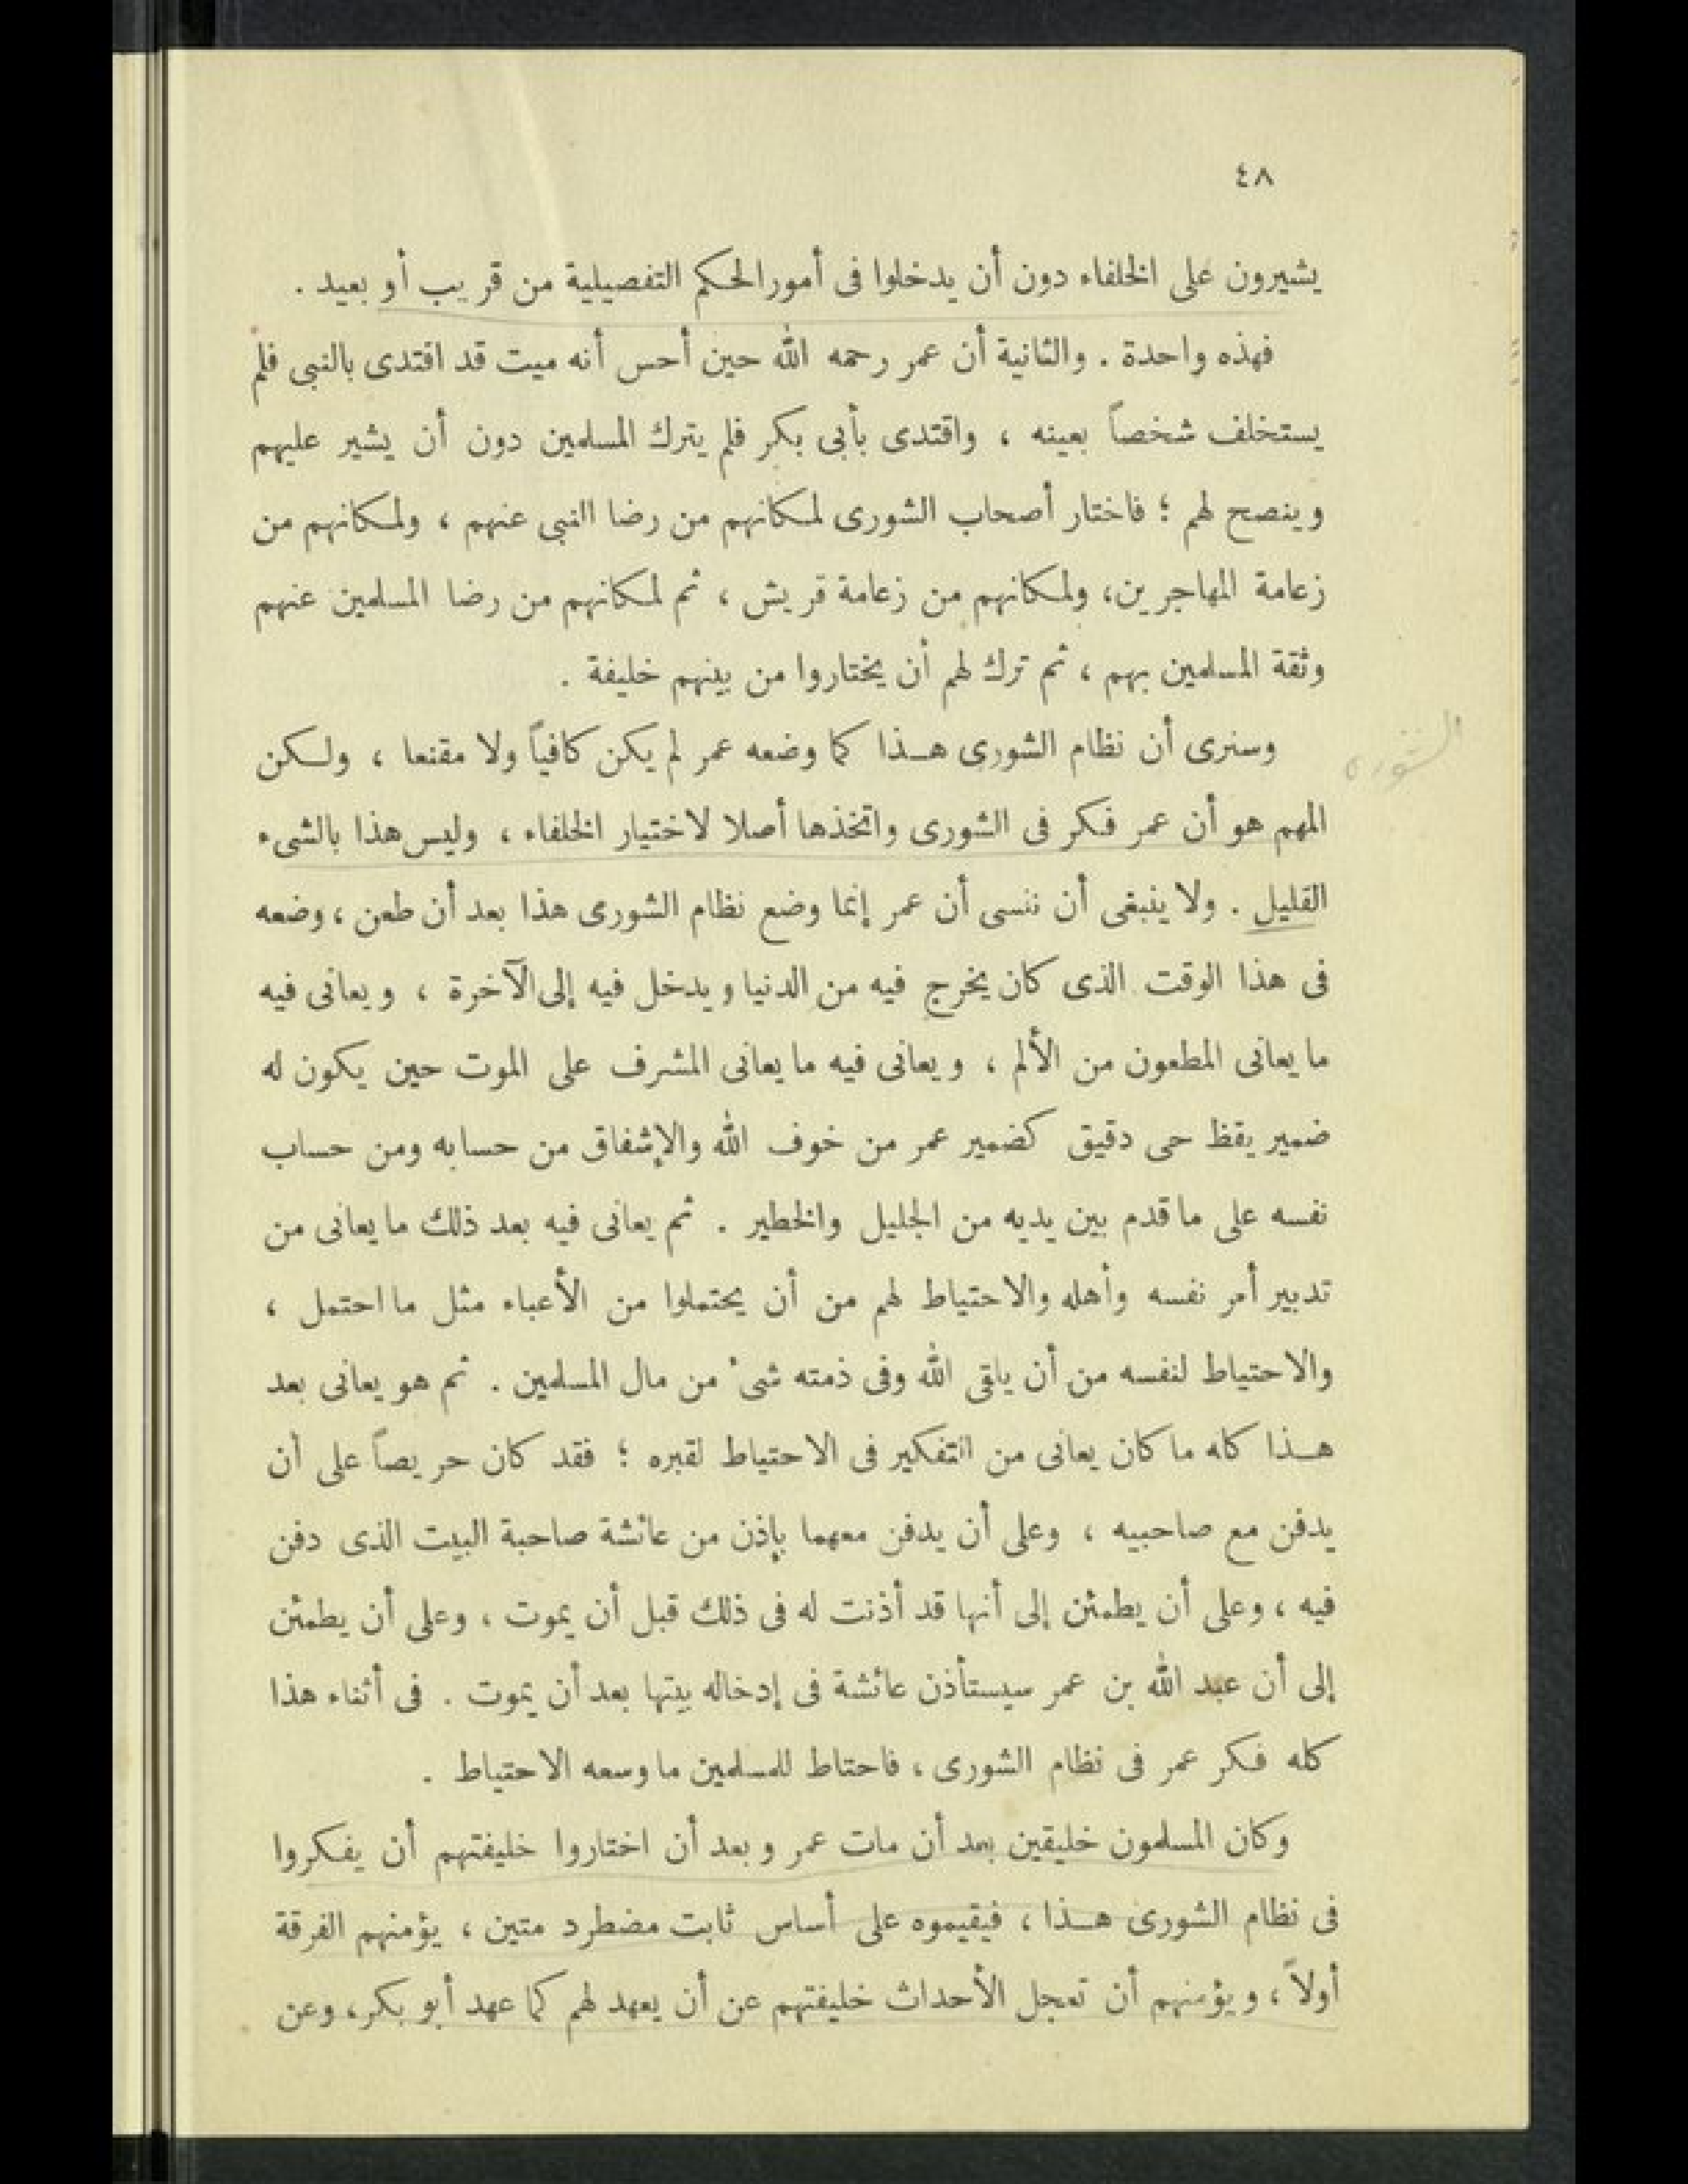 ٤٨
يشيرون على الخلفاء دون أن يدخلوا فى أمور الحكم التفصيلية من قريب أو بعيد .
فهذه واحدة . والثانية أن عمر رحمه الله حين أحس أنه ميت قد اقتدى بالنبى فلم
يستخلف شخصاً بعينه ، واقتدى بأبى بكر فلم يترك المسلمين دون أن يشير عليهم
وينصح لهم ؛ فاختار أصحاب الشورى لمكانهم من رضا النبى عنهم ، ولمكانهم من
زعامة المهاجرين، ولمكانهم من زعامة قريش ، ثم لمكانهم من رضا المسلمين عنهم
وثقة المسلمين بهم ، ثم ترك لهم أن يختاروا من بينهم خليفة .
وسنرى أن نظام الشورى هـذا كما وضعه عمر لم يكن كافياً ولا مقنعا ، ولكن
الشورى
المهم هو أن عمر فكر فى الشورى واتخذها أصلا لاختيار الخلفاء ، وليس هذا بالشىء
القليل . ولا ينبغى أن ننسى أن عمر إنما وضع نظام الشورى هذا بعد أن طعن ، وضعه
فى هذا الوقت الذى كان يخرج فيه من الدنيا ويدخل فيه إلى الآخرة ، ويعانى فيه
ما يعانى المطعون من الألم ، ويعانى فيه ما يعانى المشرف على الموت حين يكون له
ضمير يقظ حى دقيق كضمير عمر من خوف الله والإشفاق من حسابه ومن حساب
نفسه على ما قدم بين يديه من الجليل والخطير . ثم يعانى فيه بعد ذلك ما يعانى من
تدبير أمر نفسه وأهله والاحتياط لهم من أن يحتملوا من الأعباء مثل ما احتمل ،
والاحتياط لنفسه من أن يلقى الله وفى ذمته شىء من مال المسلمين . ثم هو يعانى بعد
هـذا كله ما كان يعانى من التفكير فى الاحتياط لقبره ؛ فقد كان حريصاً على أن
يدفن مع صاحبيه ، وعلى أن يدفن معهما بإذن من عائشة صاحبة البيت الذى دفن
فيه ، وعلى أن يطمئن إلى أنها قد أذنت له فى ذلك قبل أن يموت ، وعلى أن يطمئن
إلى أن عبد الله بن عمر سيستأذن عائشة فى إدخاله بيتها بعد أن يموت . فى أثناء هذا
كله فكر عمر فى نظام الشورى ، فاحتاط للمسلمين ما وسعه الاحتياط .
وكان المسلمون خليقين بعد أن مات عمر وبعد أن اختاروا خليفتهم أن يفكروا
فى نظام الشورى هـذا ، فيقيموه على أساس ثابت مضطرد متين ، يؤمنهم الفرقة
أولاً ، ويؤمنهم أن تعجل الأحداث خليفتهم عن أن يعهد لهم كما عهد أبو بكر، وعن